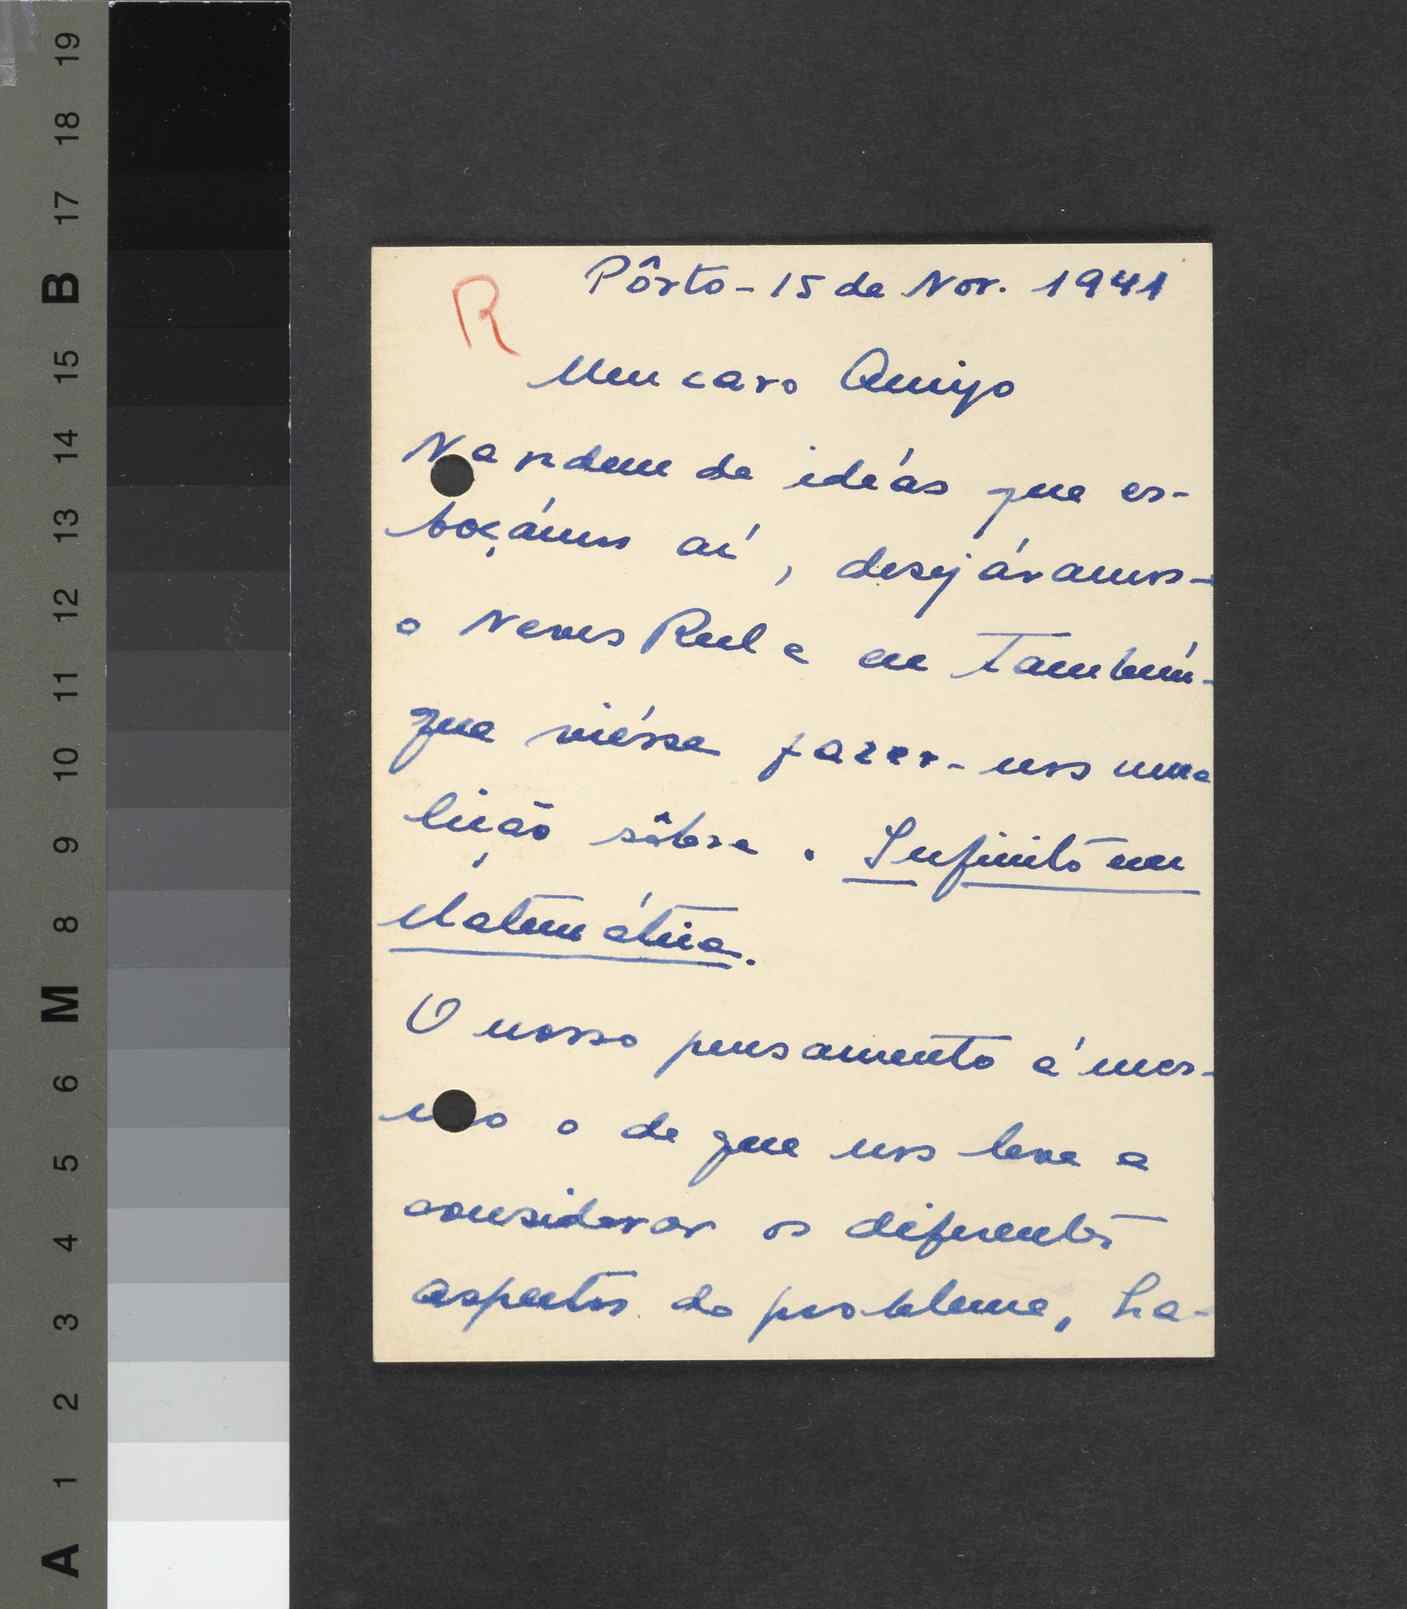 R
Pôrto - 15 de Nov. 1941
Meu caro Amigo
Na ordem de idéas que es-
boçámos aí, desejávamos -
o Neves Real e eu também -
que viésse fazer-nos uma
lição sôbre o Infinito em
Matemática.
O nosso pensamento é mes-
mo o de que nos leve a
considerar os diferentes
aspectos do problema, ha-
19
18
17
B
15
14
13
12
11
10
9
8
M
6
5
4
3
2
1
A